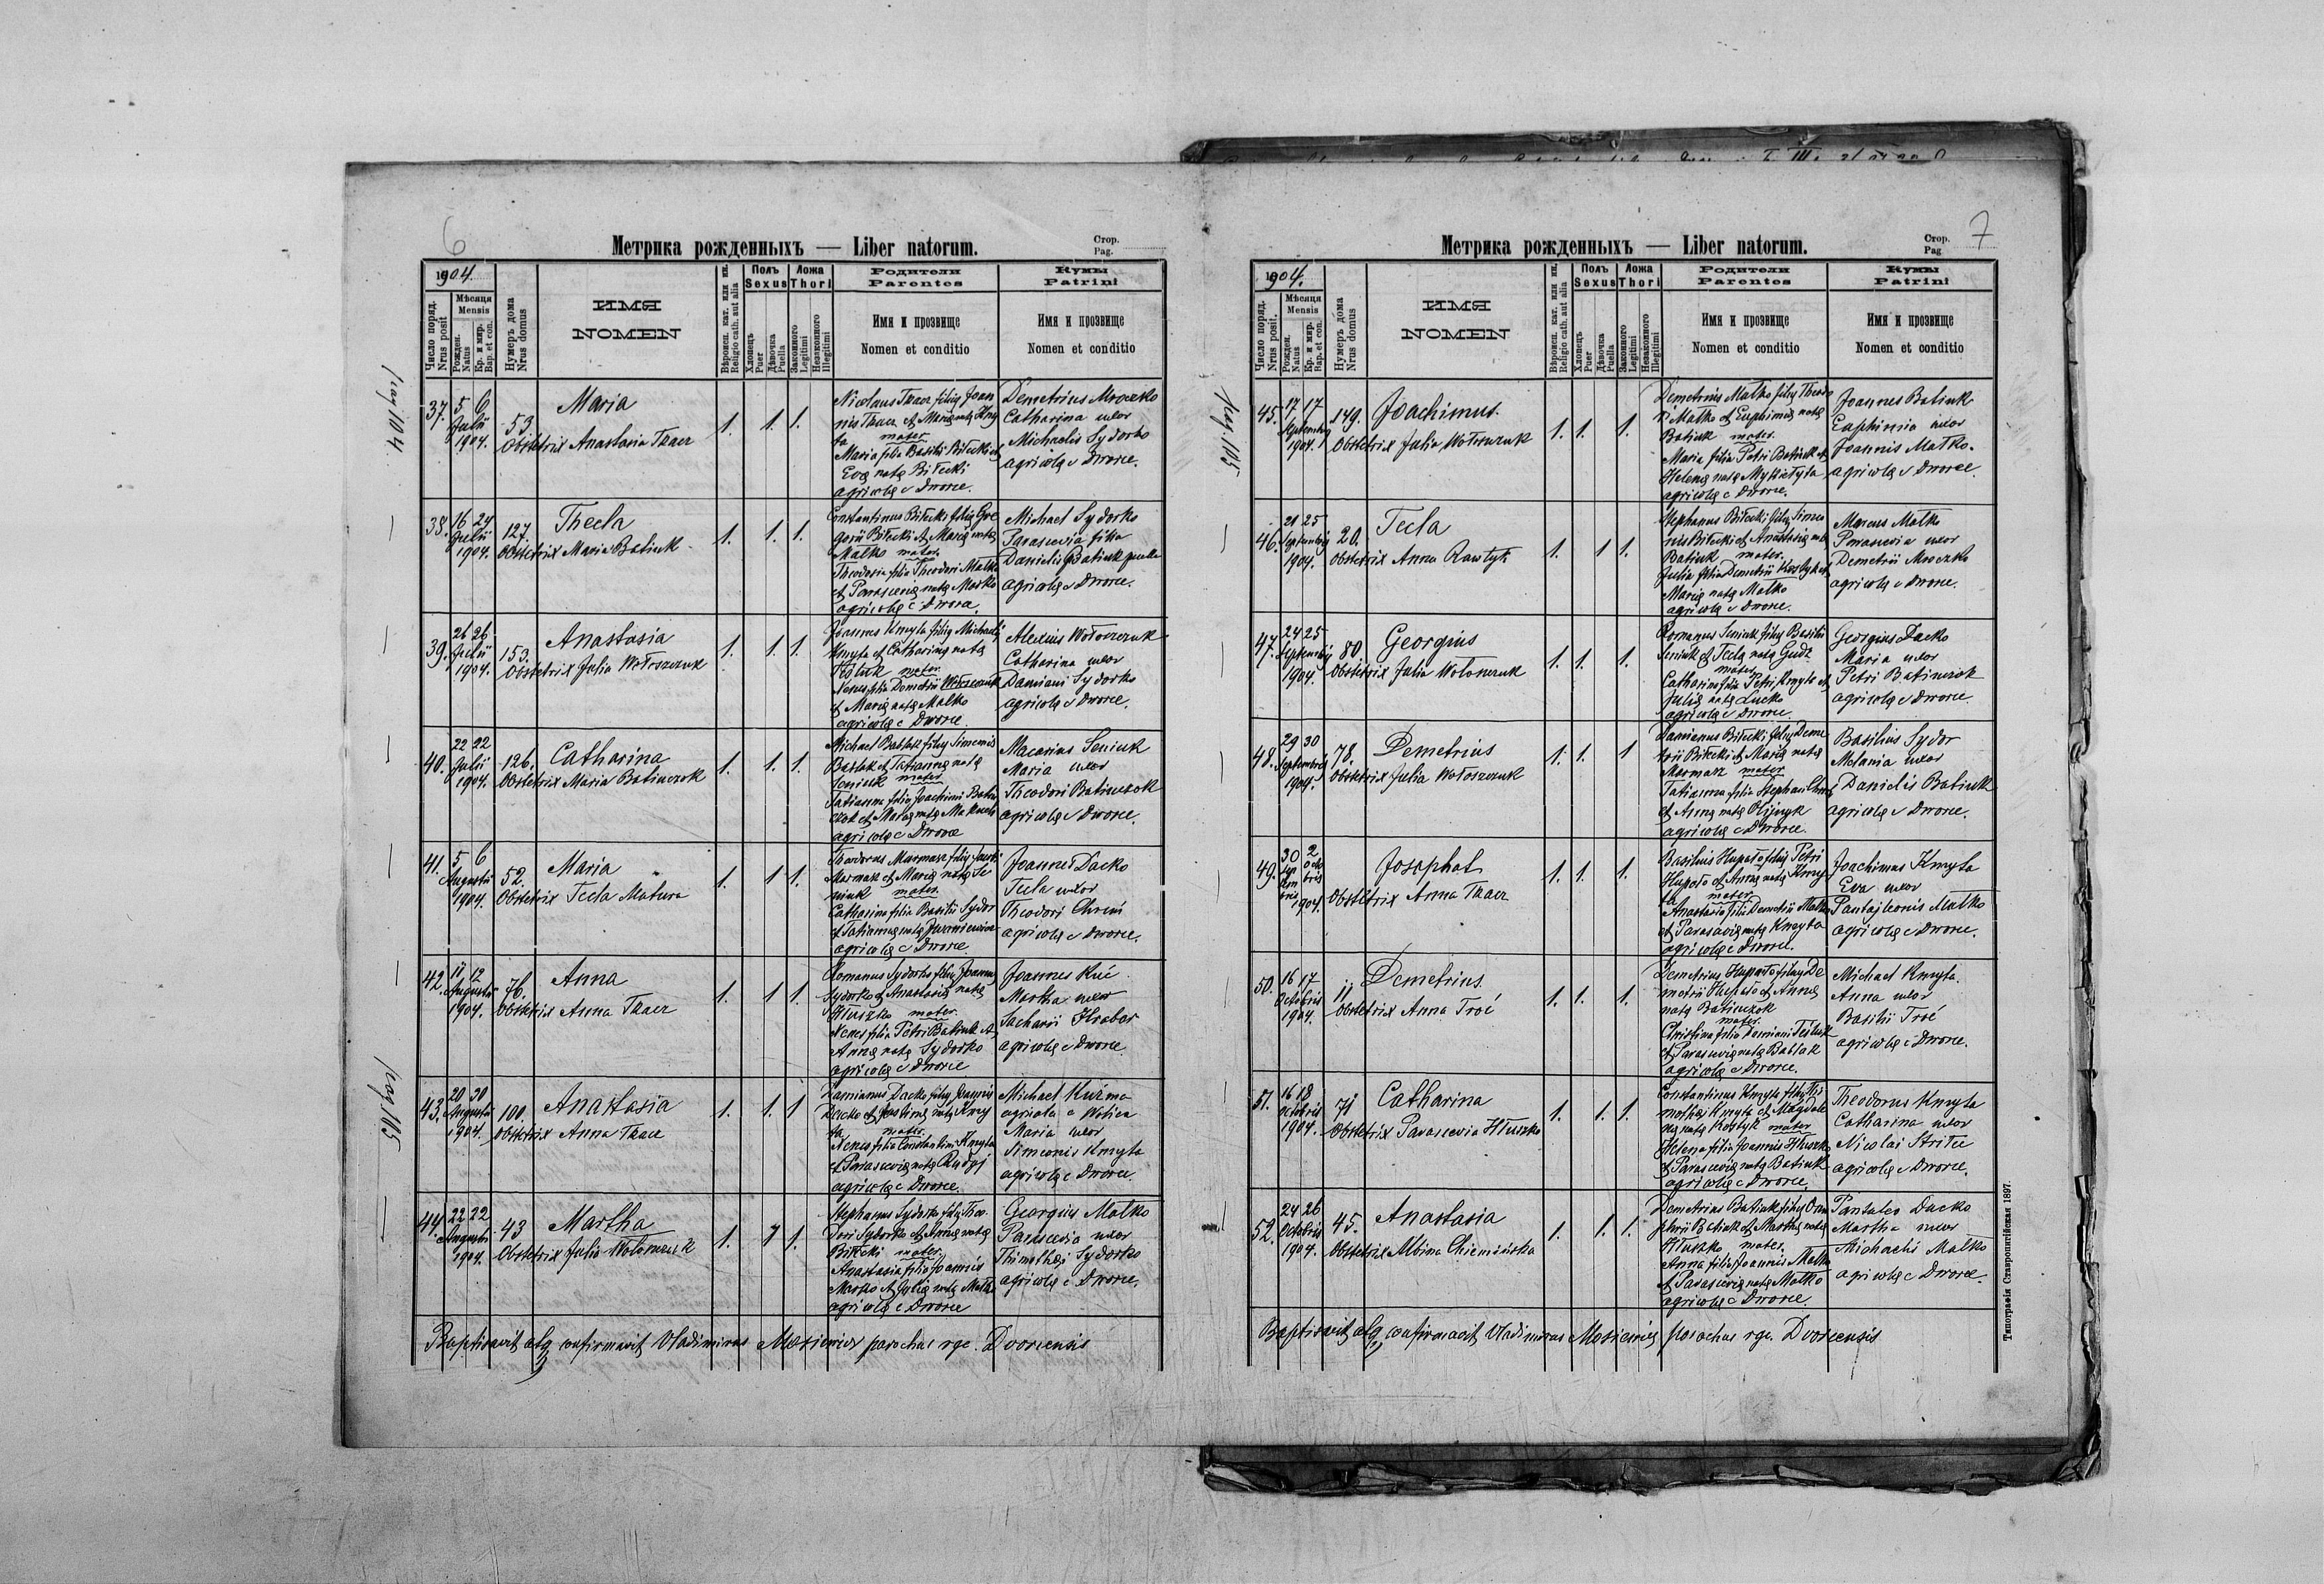 6
Метрика рожденныхъ — Liber natorum.
Стор.
Pag.
1904.
Число поряд.
Nrus posit
Мѣсяця
Mensis
Рожден.
Natus
Кр. и мир.
Bap. et con.
Нумеръ дома
Nrus domus
ИМЯ
NOMEN
Вѣроисп. кат. или ин.
Religio cath. aut alia
Полъ
Sexus
Хлопець
Puer
Дѣвочка
Puella
Ложа
Thori
Законного
Legitimi
Незаконного
Illegitimi
Родители
Parentes
Имя и прозвище
Nomen et conditio
Кумы
Patrini
Имя и прозвище
Nomen et conditio
37. 5 6
Julii
1904.
53.
Maria
Obstetrix Anastasia Tkacz
1. 1. 1.
Nicolaus Tkacz filius Joan
nis Tkacz et Maria nata Kmy
ta mater
Maria filia Basilii Biłecki et
Eva nata Biłecki
agricolę e Dworce.
Demetrius Mroczko
Catharina uxor
Michaelis Sydorko
agricolę e Dworce.
38. 16 24
Julii
1904.
127.
Thecla
Obstetrix Maria Batiuk
1. 1. 1.
Constantinus Biłecki filius Gre
gorii Biłecki et Maria nata
Matko mater.
Theodosia filia Theodori Matko
et Parascevia nata Matko
agricolę e Dworce.
Michael Sydorko
Parascevia filia
Danielis Batiuk puella
agricolę e Dworce.
39. 26 26
Julii
1904.
153.
Anastasia
Obstetrix Julia Wołoszczuk
1. 1. 1.
Joannes Kmyta filius Michaelis
Kmyta et Catharina nata
mater
Xenia filia Demetrii Wołoszczuk
et Maria nata Matko
agricolę e Dworce.
Alexius Wołoszczuk
Catharina uxor
Damiani Sydorko
agricolę e Dworce.
40. 22 22
Julii
1904.
126.
Catharina
Obstetrix Maria Batiuczok
1. 1. 1.
Michael Bablak filius Simeonis
Bablak et Tatianna nata
Seniuk mater
Tatianna filia Joachimi Batiu
czok et Maria nata
agricolę e Dworce
Macarius Seniuk
Maria uxor
Theodori Batiuczok
agricolę e Dworce.
41. 5 6
Augusti
1904.
52.
Maria
Obstetrix Tecla Matura
1. 1 1.
Theodorus Marmasz filius
Marmasz et Maria nata Se
niuk mater.
Catharina filia Basilii Sydor
et Tatianna nata
agricolę e Dworce
Joannes Dacko
Tecla uxor
Theodori
agricolę e Dworce.
42. 11 12
Augusti
1904.
76.
Anna
Obstetrix Anna Tkacz
1. 1 1.
Romanus Sydorko filius Joannis
Sydorko et Anastasia nata
Hłuszko mater.
Xenia filia Petri Batiuk et
Anna nata Sydorko
agricolę e Dworce
Joannes Kuć
Martha uxor
Zacharii Hrabar
agricolę e Dworce
43. 20 30
Augusti
1904.
100.
Anastasia
Obstetrix Anna Tkacz
1. 1. 1
Damianus Dacko filius Joannis
Dacko et Justina nata Kmy
ta mater
Xenia filia Constantini Kmyta
et Parascevia nata Rudyj
agricolę e Dworce.
Michael Kuźma
agricola e Wolica
Maria uxor
Simeonis Kmyta
agricolę e Dworce.
44. 22 22
Augusti
1904.
43
Martha
Obstetrix Julia Wołoszczuk
1. 1 1.
Stephanus Sydorko filius Theo-
dori Sydorko et Anna nata
Biłecki mater.
Anastasia filia Joannis
et Julia nata Matko
agricolę e Dworce
Georgius Matko
Parascevia uxor
Thimothei Sydorko
agricolę e Dworce.
Baptisavit atq. confirmavit Vladimirus Mosiewicz parochus rgc. Dvorcensis
pag. 104.
pag. 105
7
Метрика рожденныхъ — Liber natorum.
Стор.
Pag
1904.
Число поряд.
Nrus posit.
Мѣсяця
Mensis
Рожден.
Natus
Кр. и мир.
Bap. et con.
Нумеръ дома
Nrus domus
ИМЯ
NOMEN
Вѣроисп. кат. или ин.
Religio cath. aut alia
Полъ
Sexus
Хлопець
Puer
Дѣвочка
Puella
Ложа
Thori
Законного
Legitimi
Незаконного
Illegitimi
Родители
Parentes
Имя и прозвище
Nomen et conditio
Кумы
Patrini
Имя и прозвище
Nomen et conditio
pag. 105
45. 17 17
Septembris
1904.
149.
Joachimus.
Obstetrix Julia Wołoszczuk
1. 1. 1.
Demetrius Matko filius Theodo
ri Matko et Euphimia nata
Batiuk mater.
Maria filia Petri Batiuk et
Helena nata Mykietyta
agricolę e Dworce.
Joannes Batiuk
Euphimia uxor
Joannis Matko.
agricolę e Dworce
46. 21 25
Septembris
1904.
20.
Tecla
Obstetrix Anna Rawłyk
1. 1 1.
Stephanus Biłecki filius Simeo
nis Biłecki et Anastasia nata
Batiuk mater.
Julia filia Demetrii Kostyk et
Maria nata Matko
agricolę e Dworce.
Marcus Matko
Parascevia uxor
Demetrii Mroczko
agricolę e Dworce.
47. 24 25
Septembris
1904.
80.
Georgius
Obstetrix Julia Wołoszczuk
1. 1. 1.
Romanus Seniuk filius Basilii
Seniuk et Tecla nata Gudz
mater.
Catharina filia Petri Kmyta et
Julia nata Lucko
agricolę e Dworce.
Georgius Dacko
Maria uxor
Petri Batiuczok
agricolę e Dworce.
48. 29 30
Septembris
1904.
78.
Demetrius
Obstetrix Julia Wołoszczuk
1. 1. 1
Damianus Biłecki filius Deme
trii Biłecki et Maria nata
Marmasz mater
Tatianna filia Stephani
et Anna nata Olijnyk
agricolę e Dworce.
Basilius Sydor
Melania uxor
Danielis Batiuk
agricolę e Dworce.
49. 30 2
Septembris Octobris
1904.
Josaphat
Obstetrix Anna Tkacz
1. 1. 1.
Basilius Hupało filius Petri
Hupało et Anna nata Kmy
ta mater.
Anastasia filia Demetrii Matko
et Parascevia nata Kmyta
agricolę e Dworce.
Joachimus Kmyta
Eva uxor
Pantajleonis Matko
agricolę e Dworce.
50. 16 17
Octobris
1904.
11.
Demetrius
Obstetrix Anna Troć
1. 1. 1.
Demetrius Hupało filius De
metrii Hupało et Anna
nata Batiuczok
mater.
Christina filia Damiani
et Parascevia nata Bablak
agricolę e Dworce.
Michael Kmyta.
Anna uxor
Basilii Troć
agricolę e Dworce.
51. 16 18
Octobris
1904.
71
Catharina
Obstetrix Parascevia Hłuszko
1. 1. 1.
Constantinus Kmyta filius Thi
mothei Kmyta et Magdale
na nata Kostyk mater
Helena filia Joannis Hłuszko
et Parascevia nata Batiuk
agricolę e Dworce.
Theodorus Kmyta
Catharina uxor
Nicolai
agricolę e Dworce.
52. 24 26
Octobris
1904.
45.
Anastasia
Obstetrix Albina
1. 1. 1.
Demetrius Batiuk filius Onu
phrii Batiuk et Martha nata
Hłuszko mater.
Anna filia Joannis Matko
et Parascevia nata Matko
agricolę e Dworce.
Pantaleo Dacko
Martha uxor
Michaelis Matko
agricolę e Dworce.
Baptisavit atq. confirmavit Vladimirus Mosiewicz parochus rgc. Dvorcensis
Типографія Ставропигійская 1897.